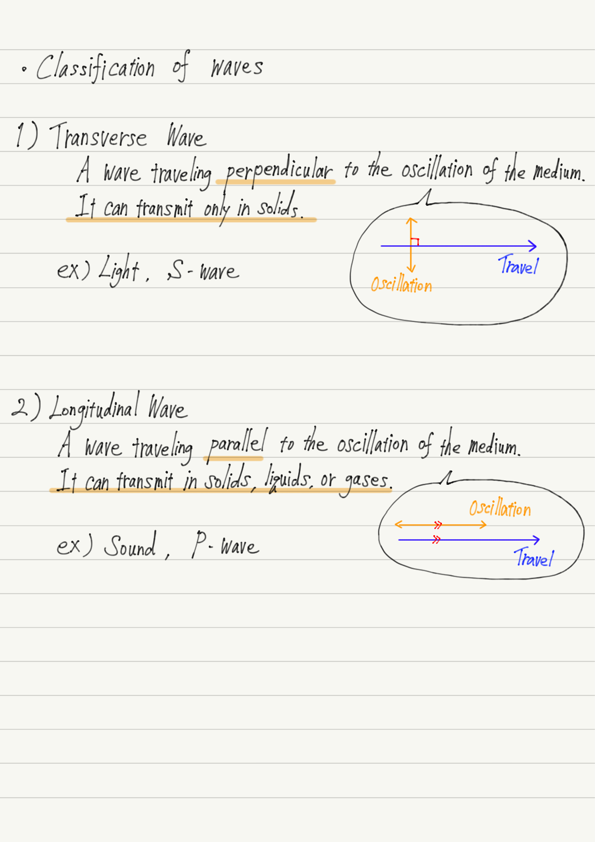 • Classification of waves
1) Transverse Wave
A wave traveling perpendicular to the oscillation of the medium.
It can transmit only in solids.
ex) Light, S-wave
Travel
Oscillation
2) Longitudinal Wave
A wave traveling parallel to the oscillation of the medium.
It can transmit in solids, liquids, or gases.
Oscillation
ex) Sound, P-wave
Travel